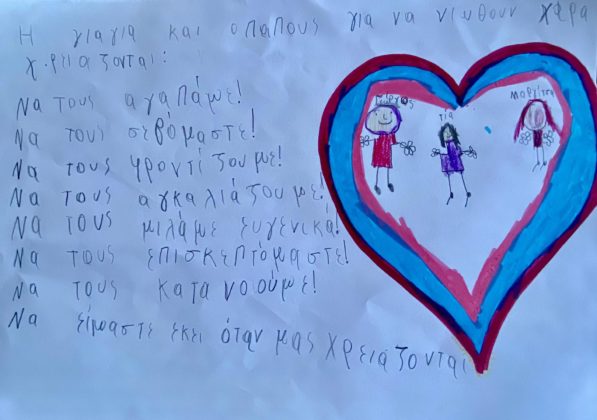 Η γιαγια και ο παπους για να νιωθουν χαρα
χρειαζονται:
Να τους αγαπάμε!
Να τους σεβόμαστε!
Να τους φροντίζουμε!
Να τους αγκαλιάζουμε!
Να τους μιλάμε ευγενικά!
Να τους επισκεπτόμαστε!
Να τους κατανοούμε!
Να είμαστε εκει όταν μας χρειάζονται
Γιώργος
Μαρλίτα